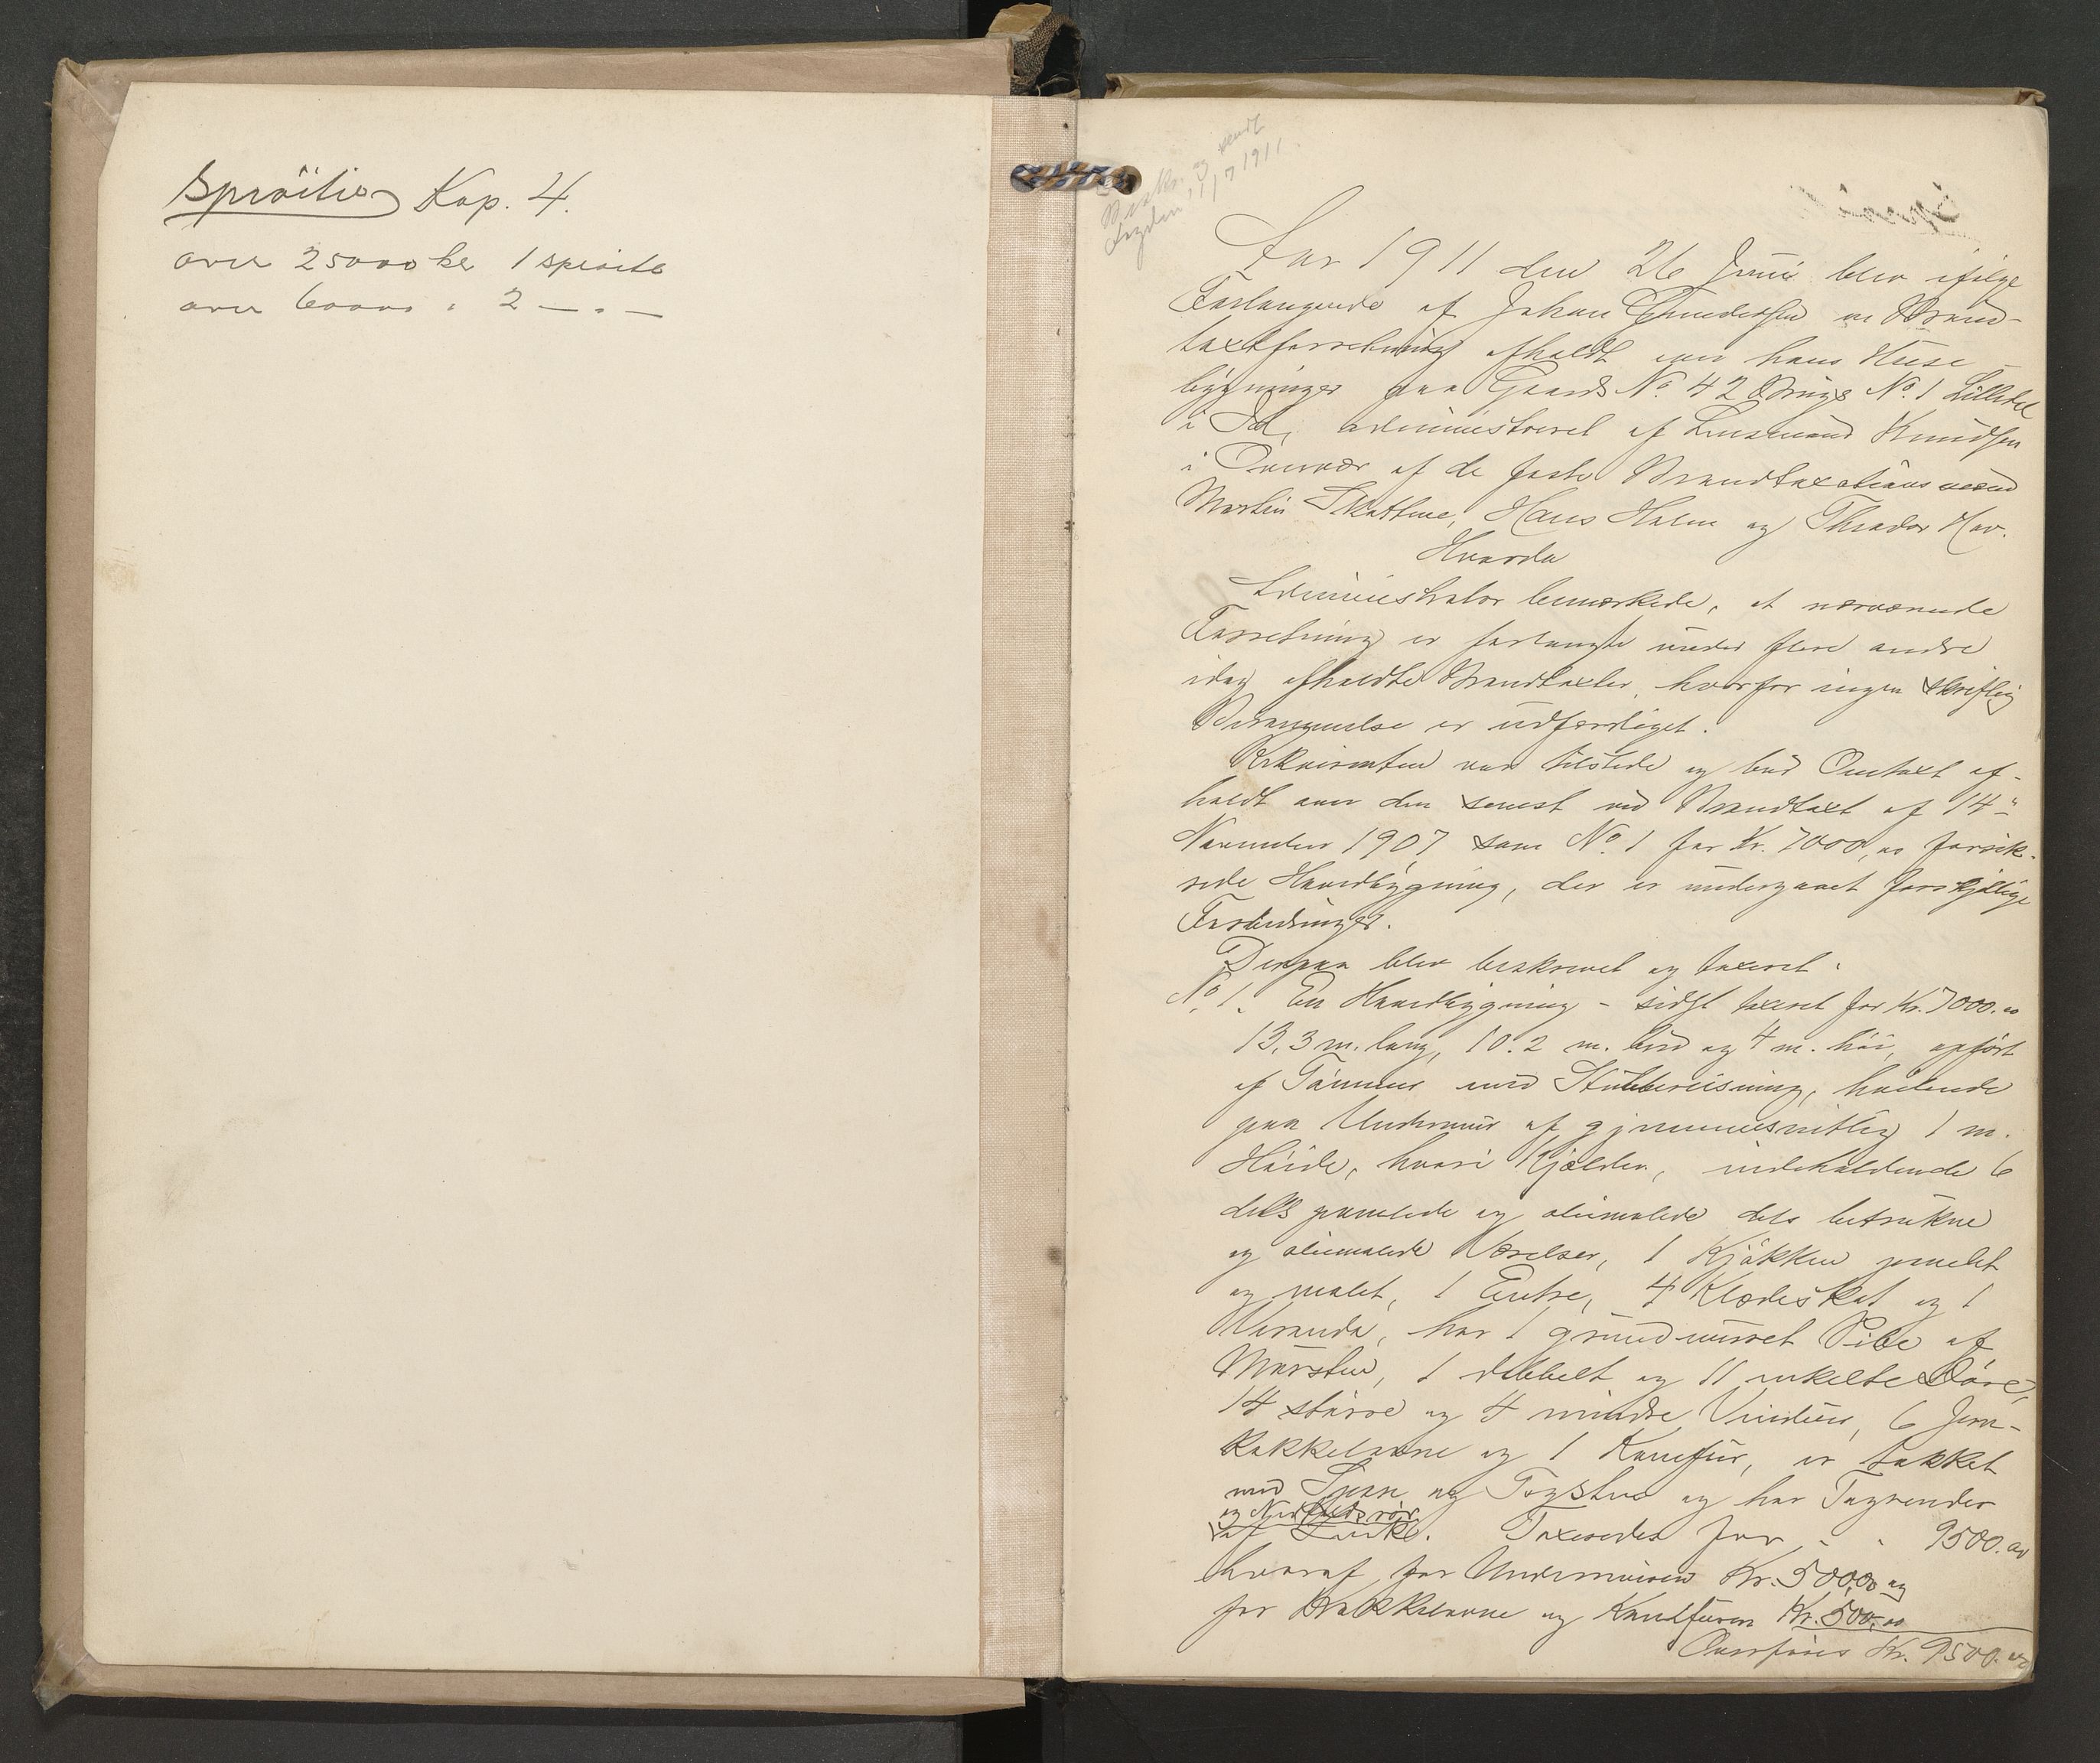 Spröiter Kap. 4.
over 25000 kr 1 spröite
over 60000 " 2 — " —
Beskr. og sendt
Fogden 11/7 1911.
Aar 1911 den 26 Juni blev ifølge
Forlangende af Johan Gundersen en Brand-
taxtforretning afholdt over hans Huse
bygninger paa Gaards No. 42 Brugs No. 1 Lilledal
i Id, administreret af Lensmand Knudsen
i Overvær af de faste Brandtaxationsmænd
Martin Skattue, Hans Holm og Theodor Hov.
Hvorda
Administrator bemærkede, at nærværende
Forretning er forlangte under flere andre
idag afholdte Brandtaxter, hvorfor ingen skriftlig
Berammelse er udfærdiget.
Rekvirenten var tilstede og bad Omtaxt af-
holdt over den senest ved Brandtaxt af 14de
November 1907 som No. 1 for Kr. 7000,00 forsik-
rede Hovedbygning, der er undergaaet forskjellige
Forbedringer.
Derpaa blev beskrevet og taxeret:
No. 1. En Hovedbygning - sidst taxeret for Kr. 7000.00
13,3 m. lang, 10.2 m. bred og 4 m. höi, opført
af Tömmer med Stubbereisning, hvilende
paa Undermur af gjennemsnitlig 1 m.
Höide, hvori Kjælder, indeholdende 6
dels panelede og oliemalede dels betrukne
og oliemalede Værelser, 1 Kjökken panelet
og malet, 1 Entre, 4 Klædeskot og 1
Veranda, har 1 grundmuret Pibe af
Mursten, 1 dobbelt og 11 enkelte Döre,
14 större og 4 mindre Vinduer, 6 Jern-
kakkelovne og 1 Komfur, er tækket
med Spon og Tagsten og har Tagrender
og Nedløbsrör
af Zink. Taxeredes for . . 9500.00
hvoraf for Undermuren Kr. 500,00 og
for Kakkelovne og Komfuren Kr. 500,00
Overføres Kr. 9500.00